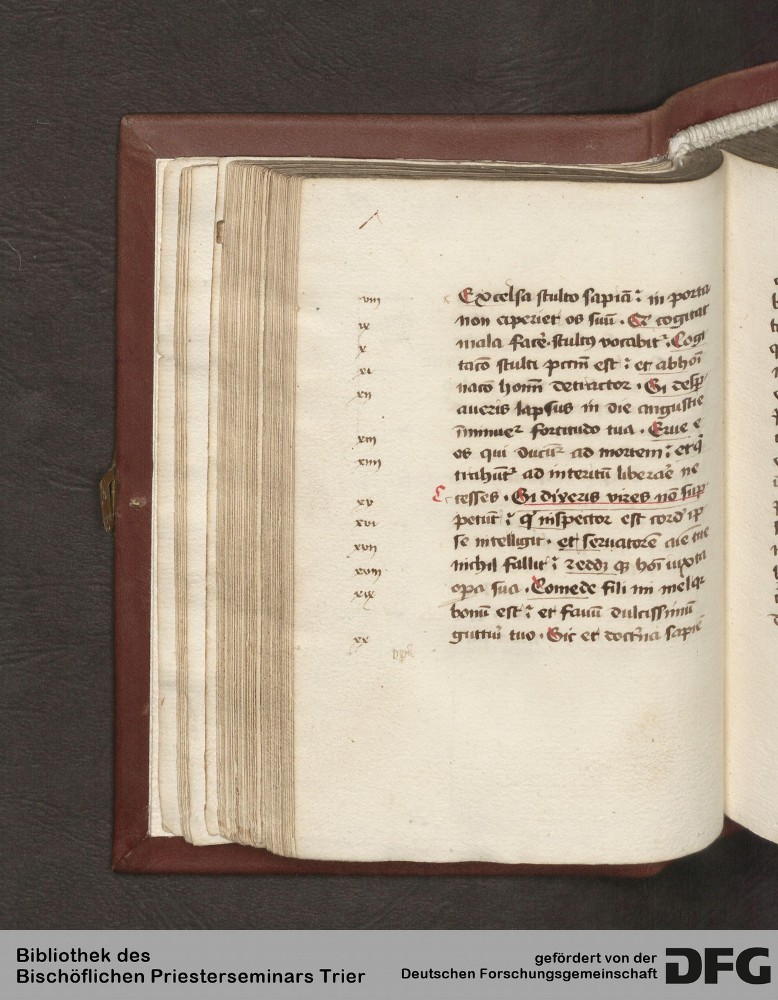 viii
Excelsa stulto sapiā : in porta
ix
non aperiet os suū . Qi cogitat
x
mala facẽ . stultꝰ vocabit᷑ . Cogi
xi
tacō stulti pctm̄ est : et abhoī
xii
nacō hoīm detractor . Si desp̄
averis lapsus in die angustie
xiii
īminuet᷑ fortitudo tua . Erue e
xiiii
os qui ducūt᷑ ad mortem : et q̇
trahūt᷑ ad interitū liberare ne
xv
cesses . Si dixeris vires nō sup
xvi
petūt : q̇ inspector est cord᷑ ip̄
xvii
se intelligit . et seruatorē aīe tue
xviii
nichil fallit : reddꝫ qꝫ hoī iuxta
xix
opa sua . Comede fili mi mel qꝛ
bonū est : et fauū dulcissimū
xx
gutturi tuo . Sic et doctͥna sapiē
Bibliothek des
Bischöflichen Priesterseminars Trier
gefördert von der
Deutschen Forschungsgemeinschaft
DFG